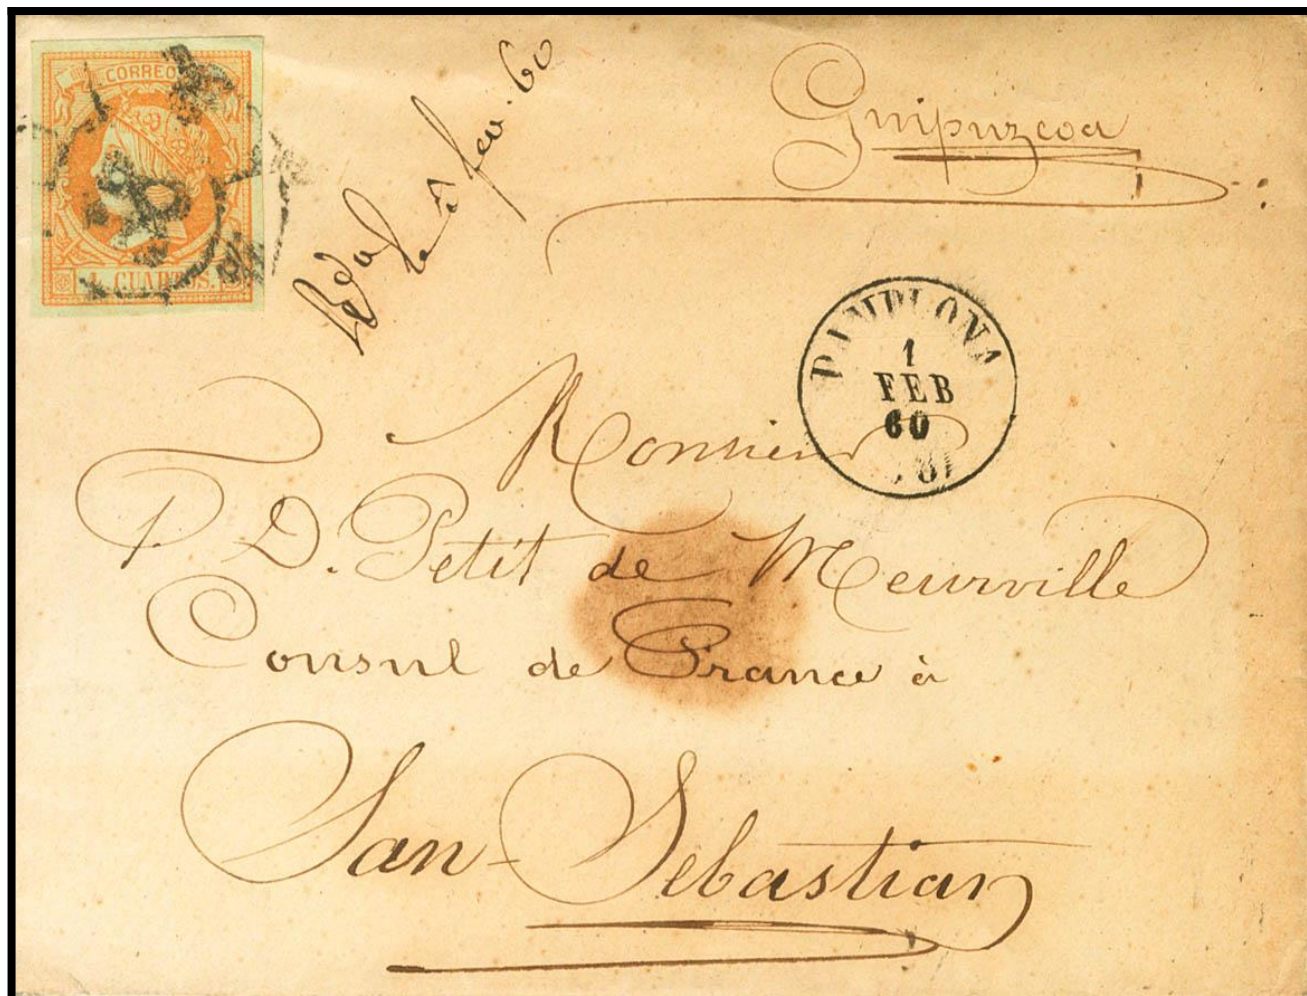 CORREOS
4 CUARTOS.
le 5 fev. 60
Guipuzcoa
PAMPLONA
1
FEB
60
Monsieur
P. D. Petit de Meurville
Consul de France à
San-Sebastian